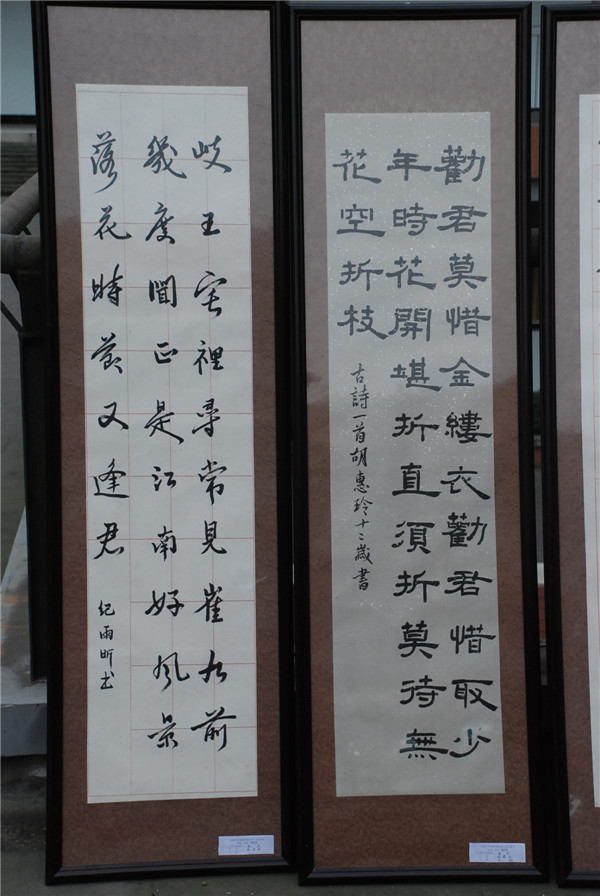 勸君莫惜金縷衣勸君惜取少
年時花開堪折直須折莫待無
花空折枝
古詩一首胡惠玲十二歲書
岐王宅裡尋常見崔九前
幾度聞正是江南好风景
落花時節又逢君
紀雨昕书